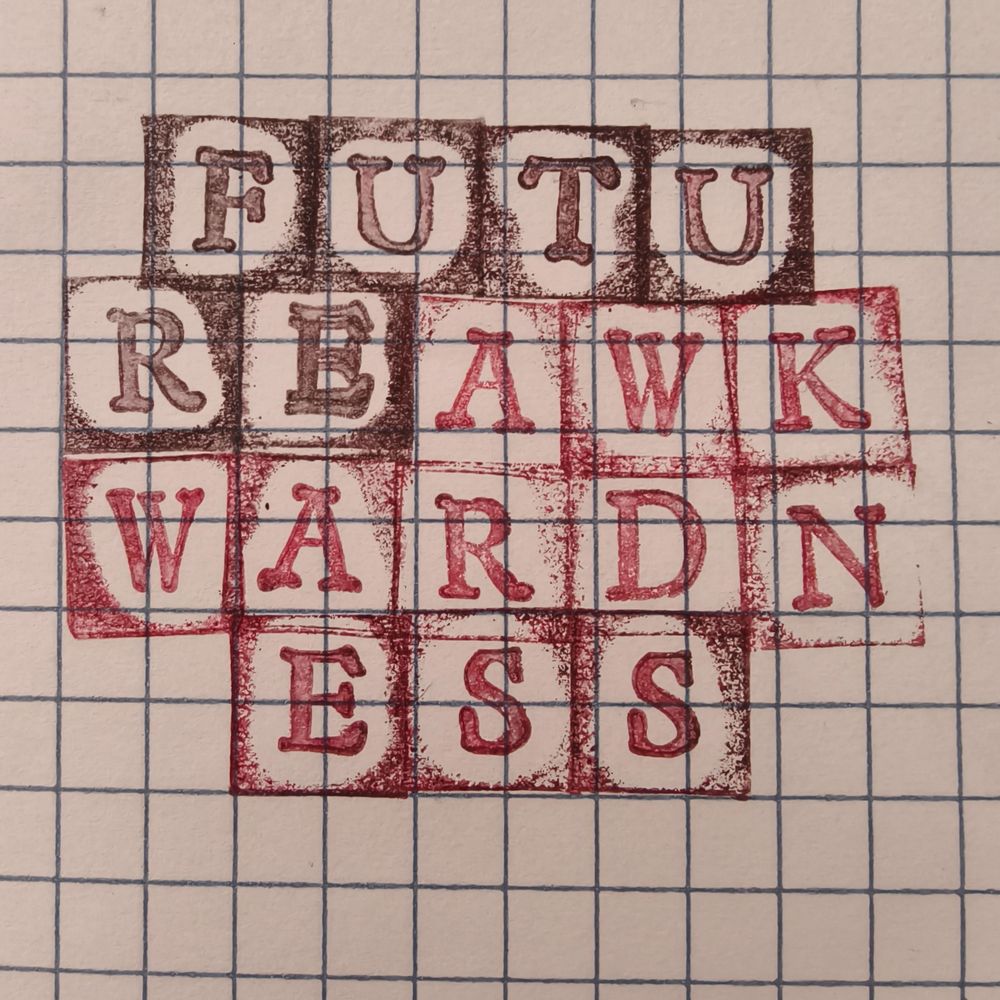 FUTU
REAWK
WARDN
ESS